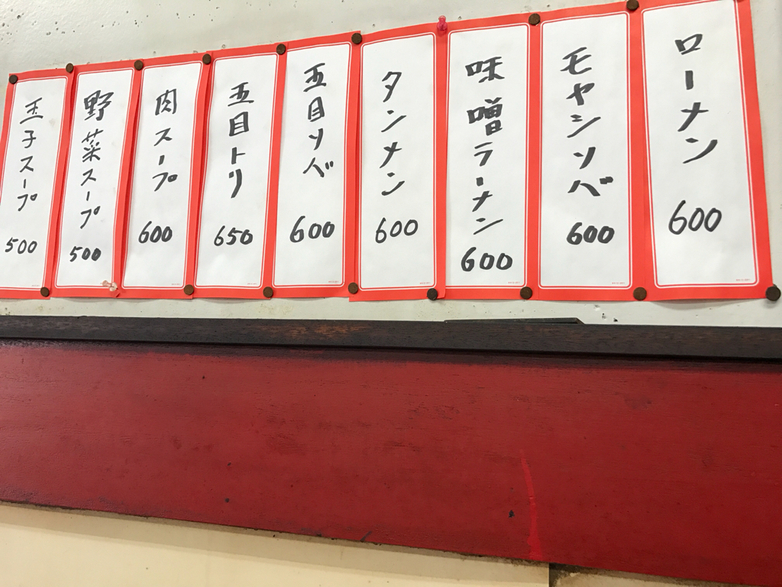 ローメン
600
モヤシソバ
600
味噌ラーメン
600
タンメン
600
五目ソバ
600
五目トリ
650
肉スープ
600
野菜スープ
500
玉子スープ
500